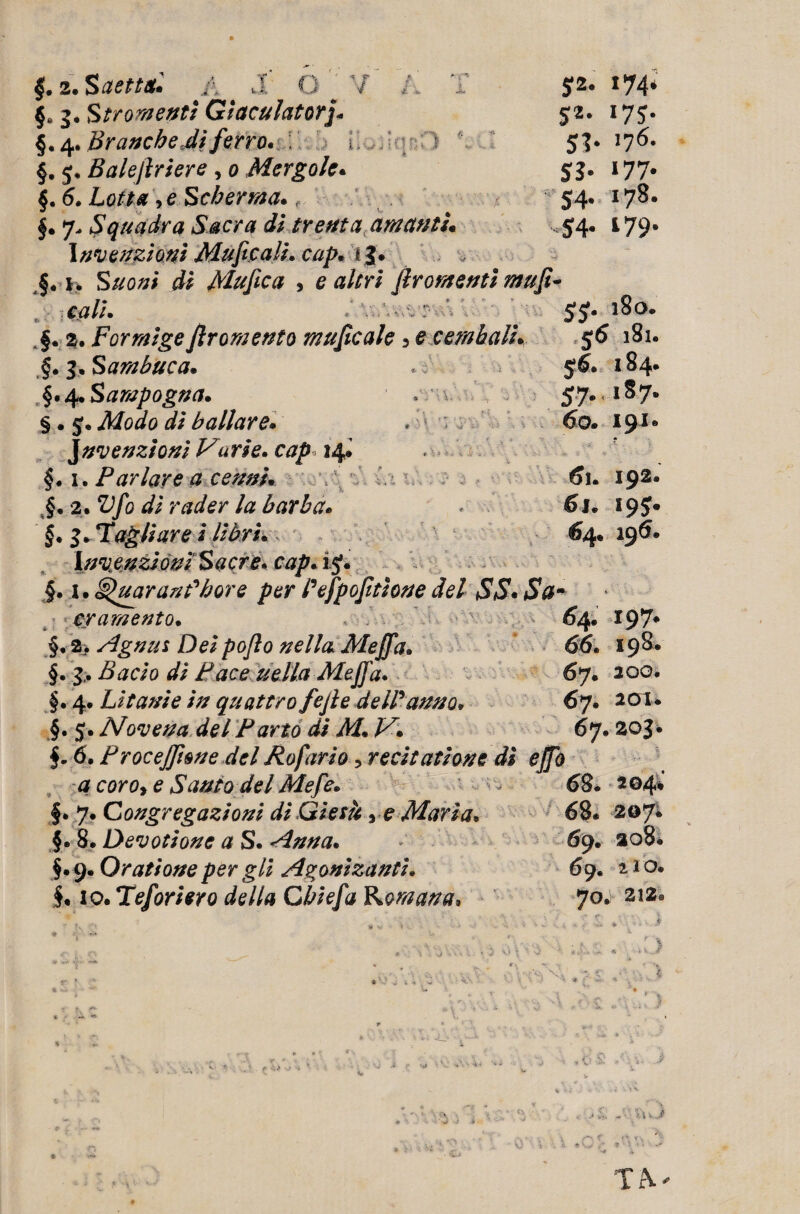 §. 2. Saetta. 52. 174.
§. 3. Stromenti Giaculatorj. 52. 175.
§. 4. Branche di ferro. 53. 176.
§. 5. Baleſtriere , o Mergole. 53. 177.
§. 6. Lotta , e Scherma. 54. 178.
§. 7. Squadra Sacra di trenta amanti. 54. 179.
Invenzioni Muſicali. cap. 13.
§. 1. Suoni di Muſica , e altri ſtromenti muſi-
cali. 55. 180.
§. 2. Formige ſtromento muſicale , e cembali. 56 181.
§. 3. Sambuca. 56. 184.
§. 4. Sampogna. 57. 187.
§ . 5. Modo di ballare. 60. 191.
Invenzioni Varie. cap 14.
§. 1. Parlare a cenni. 61. 192.
§. 2. Vſo di rader la barba. 61. 195.
§. 3. Tagliare i libri. 64. 196.
Invenzioni Sacre. cap. 15.
§. 1. Quarant'hore per l'eſpoſitione del SS. Sa-
cramento. 64. 197.
§. 2. Agnus Dei poſto nella Meſſa. 66. 198.
§. 3. Bacio di Pace nella Meſſa. 67. 200.
§. 4. Litanie in quattro feſte dell'anno. 67. 201.
§. 5. Novena del Parto di M. V. 67. 203.
§. 6. Proceſſione del Roſario , recitatione di eſſo
a coro, e Santo del Meſe. 68. 204.
§. 7. Congregazioni di Giesù , e Maria. 68. 207.
§. 8. Devotione a S. Anna. 69. 208.
§. 9. Oratione per gli Agonizanti. 69. 210.
§. 10. Teſoriero della Chieſa Romana. 70. 212.
TA-